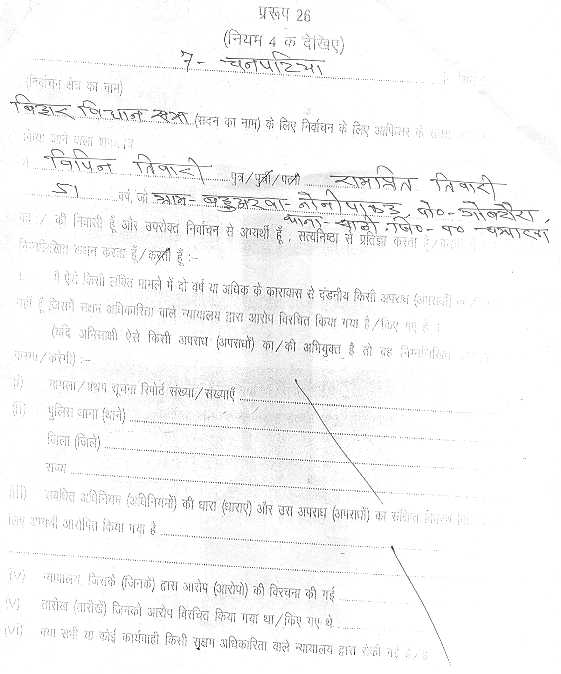 प्ररूप 26
(नियम 4 क देखिए)
7- चनपटिया
(निर्वाचन क्षेत्र का नाम)
बिहार विधान सभा (सदन का नाम) के लिए निर्वाचन के लिए
किया जाने वाला शपथ
विपिन तिवारी पुत्र/पुत्री/पत्नी तिवारी
51 वर्ष, जो ग्राम-
थाना- जि०- प० - चम्पारण
का / की निवासी हूँ और उपरोक्त निर्वाचन से अभ्यर्थी हूँ, सत्यनिष्ठा से प्रतिज्ञा करता हूँ/
निम्नलिखित कथन करता हूँ/करती हूँ :-
मैं ऐसे किसी लंबित मामले में दो वर्ष या अधिक के कारावास से दंडनीय किसी अपराध (अपराधों) का
नहीं हूँ जिसमें सक्षम अधिकारिता वाले न्यायालय द्वारा आरोप विरचित किया गया है/किए गए हैं
(यदि अभिसाक्षी ऐसे किसी अपराध (अपराधों) का/की अभियुक्त है तो वह निम्नलिखित
करेगा/करेगी) :-
(i) मामला/प्रथम सूचना रिपोर्ट संख्या/संख्याएँ
(ii) पुलिस थाना (थाने)
जिला (जिले)
राज्य
(iii) संबंधित अधिनियम (अधिनियमों) की धारा (धाराएं) और उस अपराध (अपराधों) का संक्षिप्त विवरण
लिए अभ्यर्थी आरोपित किया गया है
(IV) न्यायालय जिसके (जिनके) द्वारा आरोप (आरोपों) की विरचना की गई
(V) तारीख (तारीखें) जिनको आरोप विरचित किया गया था/किए गए थे
(VI) क्या सभी या कोई कार्यवाही किसी सक्षम अधिकारिता वाले न्यायालय द्वारा रोकी गई है/